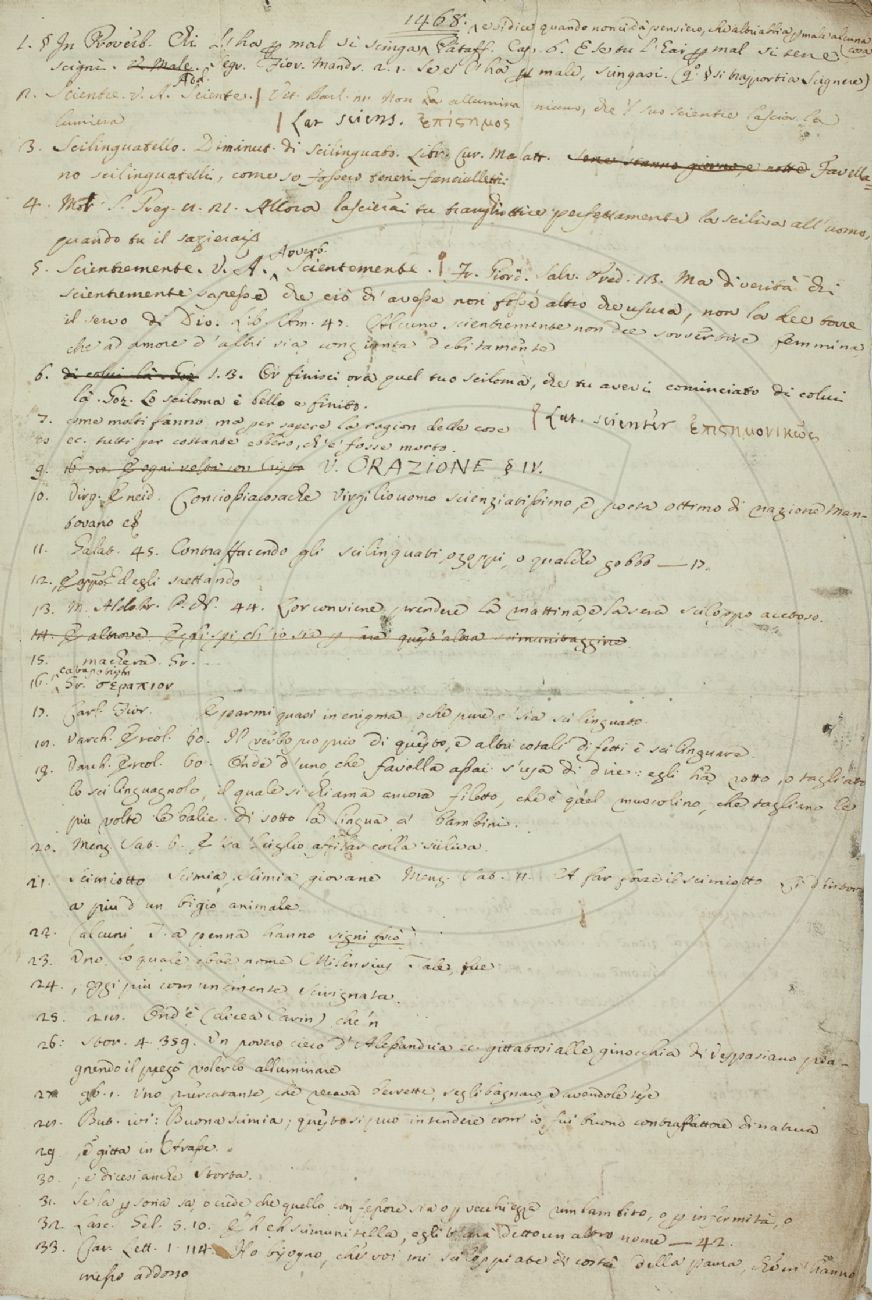 1468.
e si dice quando non ci dà pensiero, che altri abbia per male alcuna cosa
1. § In Proverb. Chi l'ha per mal si scinga. Pataff. Cap. 6. E se tu l'hai per mal si ten e
scigni. v. Male. Segr. Fior. Mandr. 2. 1. Se e' l'ha per male, scingasi. (q.° § si trapporti a Scignere)
2. Scientre. v. A. Add. Sciente. niuno, che 'l suo scientre lascior la
lumiera Lat. sciens. ἐπίσημος
3. Scilinguatello. Diminut. di Scilinguato. Libr. Cur. Malatt. Favella=
no scilinguatelli, come so fossero teneri fanciulletti.
4. Mor. S. Greg. Allora lascierai tu tranghiottire perfettamente la sciliva all'uomo,
quando tu il sazierai
5. Scientremente. V. A. Avverb. Scientemente. Fr. Giord. Salv. Pred. 113. Ma di verità chi
scientremente sapesse che ciò ch'avesse non fosse altro che usura, non la dee torre
il servo di Dio. Lib. Am. 47. Alcuno scientremente non dee sovvertire femmina
che ad amore d'altri sia congiunta debitamente
6. di colui là. Goz. 1. 3. Or finisci ora quel tuo sciloma, che tu avevi cominciato di colui
là. Goz. Lo sciloma è bello e finito.
7. come molti fanno ma per sapere la ragion delle cose Lat. scienter ἐπιστημονικῶς
ec. tutti per costante ebbero, ch'e' fosse morto.
9. V. ORAZIONE § IV.
10. Virg. Eneid. Conciossiacosachè Virgilio uomo scienziatissimo, e poeta ottimo di nazione Man-
tovano ec.
11. Galat. 45. Contraffacendo gli scilinguati, o zoppi, o qualche gobbo — 17.
12. degli aspettando
13. M. Aldobr. P. N. 44. Lor conviene prendere la mattina, e la sera sciloppo acetoso.
14. E altrove
15. maschera. Gr. ...
16. Gr. σεραπιον
17. Carl. Fior. E parmi quasi in enigma, o che pure e' sia scilinguato.
18. Varch. Ercol. 60. Il verbo proprio di questo, e altri cotali difetti è scilinguare
19. Varch. Ercol. 60. Onde d'uno, che favella assai s'usa di dire: egli ha rotto, o tagliato
lo scilinguagnolo, il quale si chiama ancora filetto, che è quel muscolino, che tagliano le
più volte le balie di sotto la lingua a' bambini.
20. Menz. Sat. 6. affilar colla sciliva.
21. Scimiotto Scimia, Scimia giovane Menz. Sat. 11. A far forse il scimiotto
a più d'un bigio animale
22. (alcuni T. a penna hanno significò)
23. Uno, lo quale ebbe nome
24. , oggi più comunemente Scrignata
25. 211. Ond'è (dicea Cavin) che'n
26. Stor. 4. 359. Un povero cieco d'Alessandria ec. gittatosi alle ginocchia di Vespasiano pia-
gnendo il pregò volerlo alluminare
27. 96. 1. Uno mercatante, che recava berrette, s'egli bagnaro, ed avendole tese
28. But. ivi: Buona scimia; questo si può intendere com'io fui buono contraffattore di natura
29. , e gitta in
30. , e dicesi anche Storta.
31. Se la persona sa, o crede che quello confessore sia o per vecchiezza rimbambito, o per infermità, o
32. Lasc. Gel. 5. 10. Eh eh scimunitella, egli t'avrà detto un altro nome — 42.
33. Car. Lett. 1. 114. Ho bisogno, che voi mi sciloppiate di costà della paura, che m'hanno
messo addosso